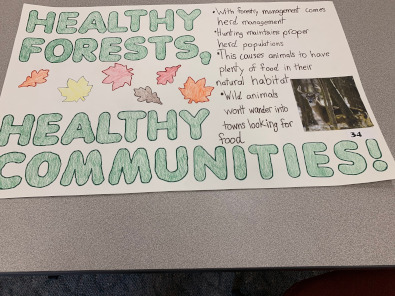 HEALTHY
FORESTS,
HEALTHY
COMMUNITIES!
• With forestry management comes
herd management
• Hunting maintains proper
herd populations
• This causes animals to have
plenty of food in their
natural habitat
• Wild animals
wont wander into
towns looking for
food
34